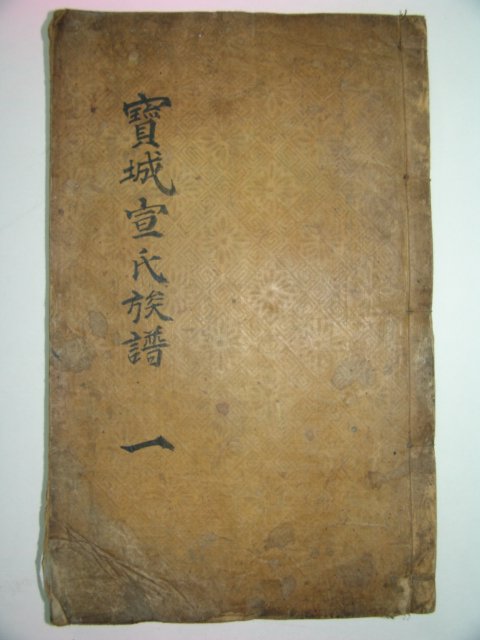 寶城宣氏族譜 一